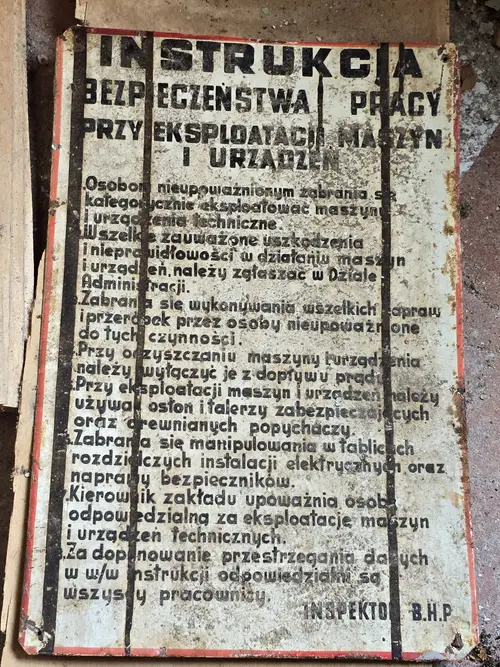 INSTRUKCJA
BEZPIECZEŃSTWA PRACY
PRZY EKSPLOATACJI MASZYN
I URZĄDZEŃ
Osobom nieupoważnionym zabrania się
kategorycznie eksploatować maszyny
i urządzenia techniczne.
Wszelkie zauważone uszkodzenia
i nieprawidłowości w działaniu maszyn
i urządzeń, należy zgłaszać w Dziale
Administracji.
Zabrania się wykonywania wszelkich napraw
i przeróbek przez osoby nieupoważnione
do tych czynności.
Przy oczyszczaniu maszyny i urządzenia
należy wyłączyć je z dopływu prądu.
Przy eksploatacji maszyn i urządzeń należy
używać osłon i talerzy zabezpieczających
oraz drewnianych popychaczy.
Zabrania się manipulowania w tablicach
rozdzielczych instalacji elektrycznych oraz
naprawy bezpieczników.
7. Kierownik zakładu upoważnia osobę
odpowiedzialną za eksploatację maszyn
i urządzeń technicznych.
Za dopilnowanie przestrzegania danych
w w/w instrukcji odpowiedzialni są
wszyscy pracownicy.
INSPEKTOR B.H.P